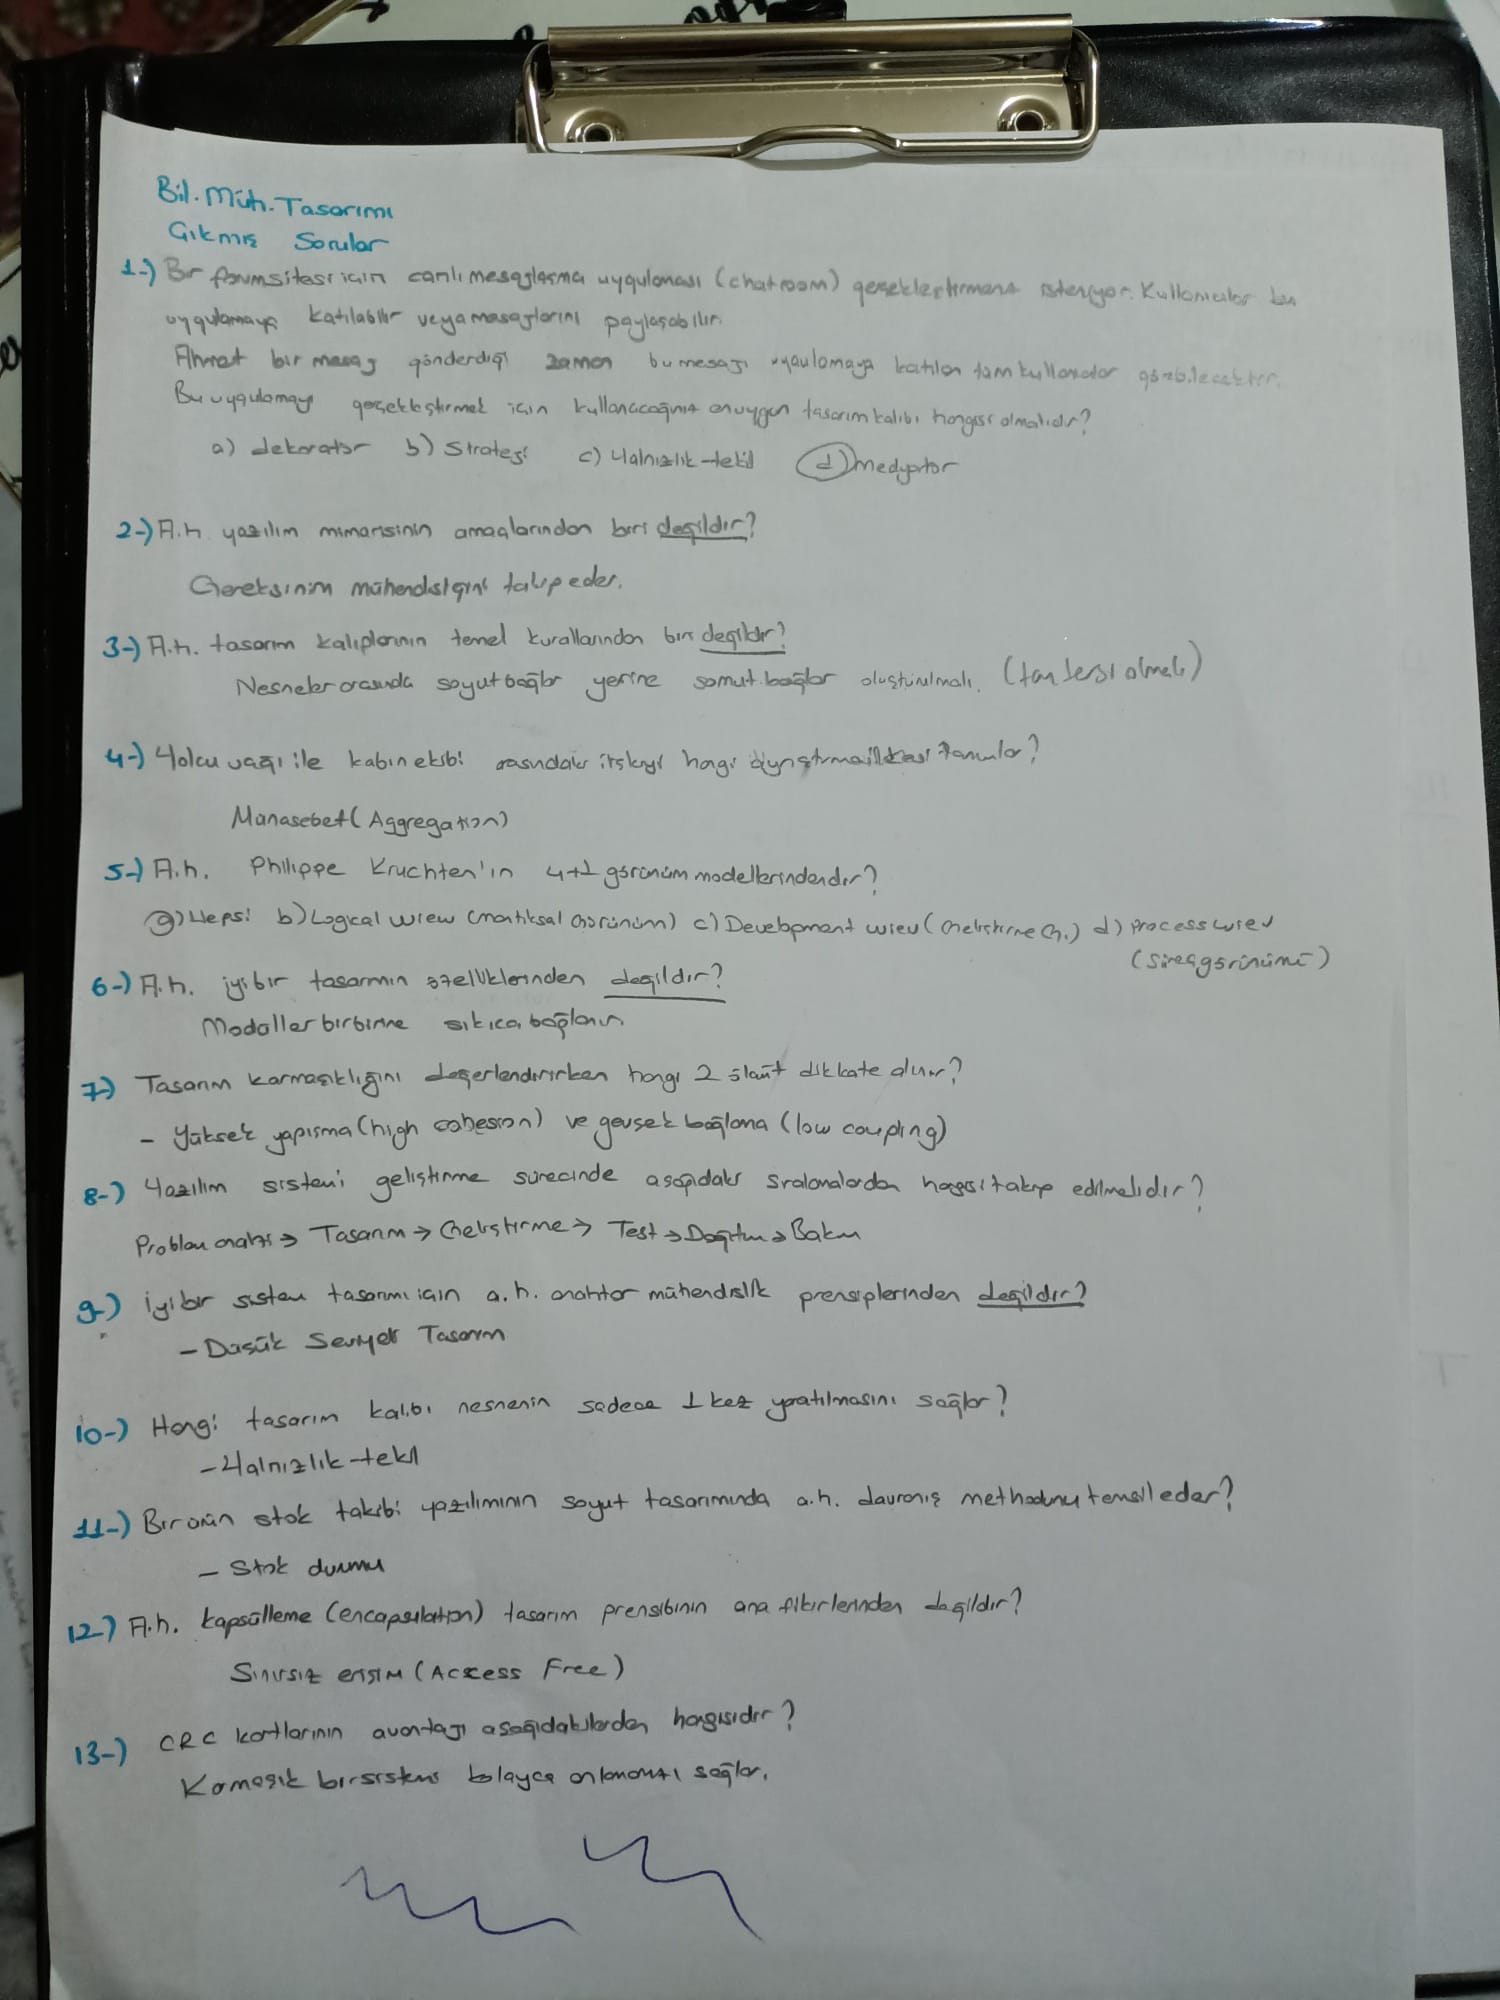 Bil. Müh. Tasarımı
Çıkmış Sorular
1-) Bir forumsitesi için canlı mesajlaşma uygulaması (chatroom) gerçekleştirmeniz isteniyor. Kullanıcılar bu
uygulamaya katılabilir veya mesajlarını paylaşabilir.
Ahmet bir mesaj gönderdiği zaman bu mesajı uygulamaya katılan tüm kullanıcılar görebilecektir.
Bu uygulamayı gerçekleştirmek için kullanacağınız en uygun tasarım kalıbı hangisi olmalıdır?
a) dekoratör b) Strateji c) Yalnızlık-tekil d) medyatör
2-) A.h. yazılım mimarisinin amaçlarından biri değildir?
Gereksinim mühendisliğini takip eder.
3-) A.h. tasarım kalıplarının temel kurallarından biri değildir?
Nesneler arasında soyut bağlar yerine somut bağlar oluşturulmalı. (tam tersi olmalı)
4-) Yolcu uçağı ile kabin ekibi arasındaki ilişkiyi hangi ayrıştırma ilkesi tanımlar?
Münasebet (Aggregation)
5-) A.h. Philippe Kruchten'in 4+1 görünüm modellerindendir?
a) Hepsi b) Logical wiew (mantıksal Görünüm) c) Development wiew (Geliştirme G.) d) Process wiew
(Süreç görünümü)
6-) A.h. iyi bir tasarımın özelliklerinden değildir?
Modüller birbirine sıkıca bağlanır
7-) Tasarım karmaşıklığını değerlendirirken hangi 2 ölçüt dikkate alınır?
- Yüksek yapışma (high cohesion) ve gevşek bağlama (low coupling)
8-) Yazılım sistemi geliştirme sürecinde aşağıdaki sıralamalardan hangisi takip edilmelidir?
Problem analizi → Tasarım → Geliştirme → Test → Dağıtım → Bakım
9-) İyi bir sistem tasarımı için a.h. anahtar mühendislik prensiplerinden değildir?
- Düşük Seviyeli Tasarım
10-) Hangi tasarım kalıbı nesnenin sadece 1 kez yaratılmasını sağlar?
- Yalnızlık-tekil
11-) Bir ürün stok takibi yazılımının soyut tasarımında a.h. davranış methodunu temsil eder?
- Stok durumu
12-) A.h. kapsülleme (encapsulation) tasarım prensibinin ana fikirlerinden değildir?
Sınırsız erişim (Access Free)
13-) CRC kartlarının avantajı aşağıdakilerden hangisidir?
Karmaşık bir sistemi kolayca anlamamızı sağlar.